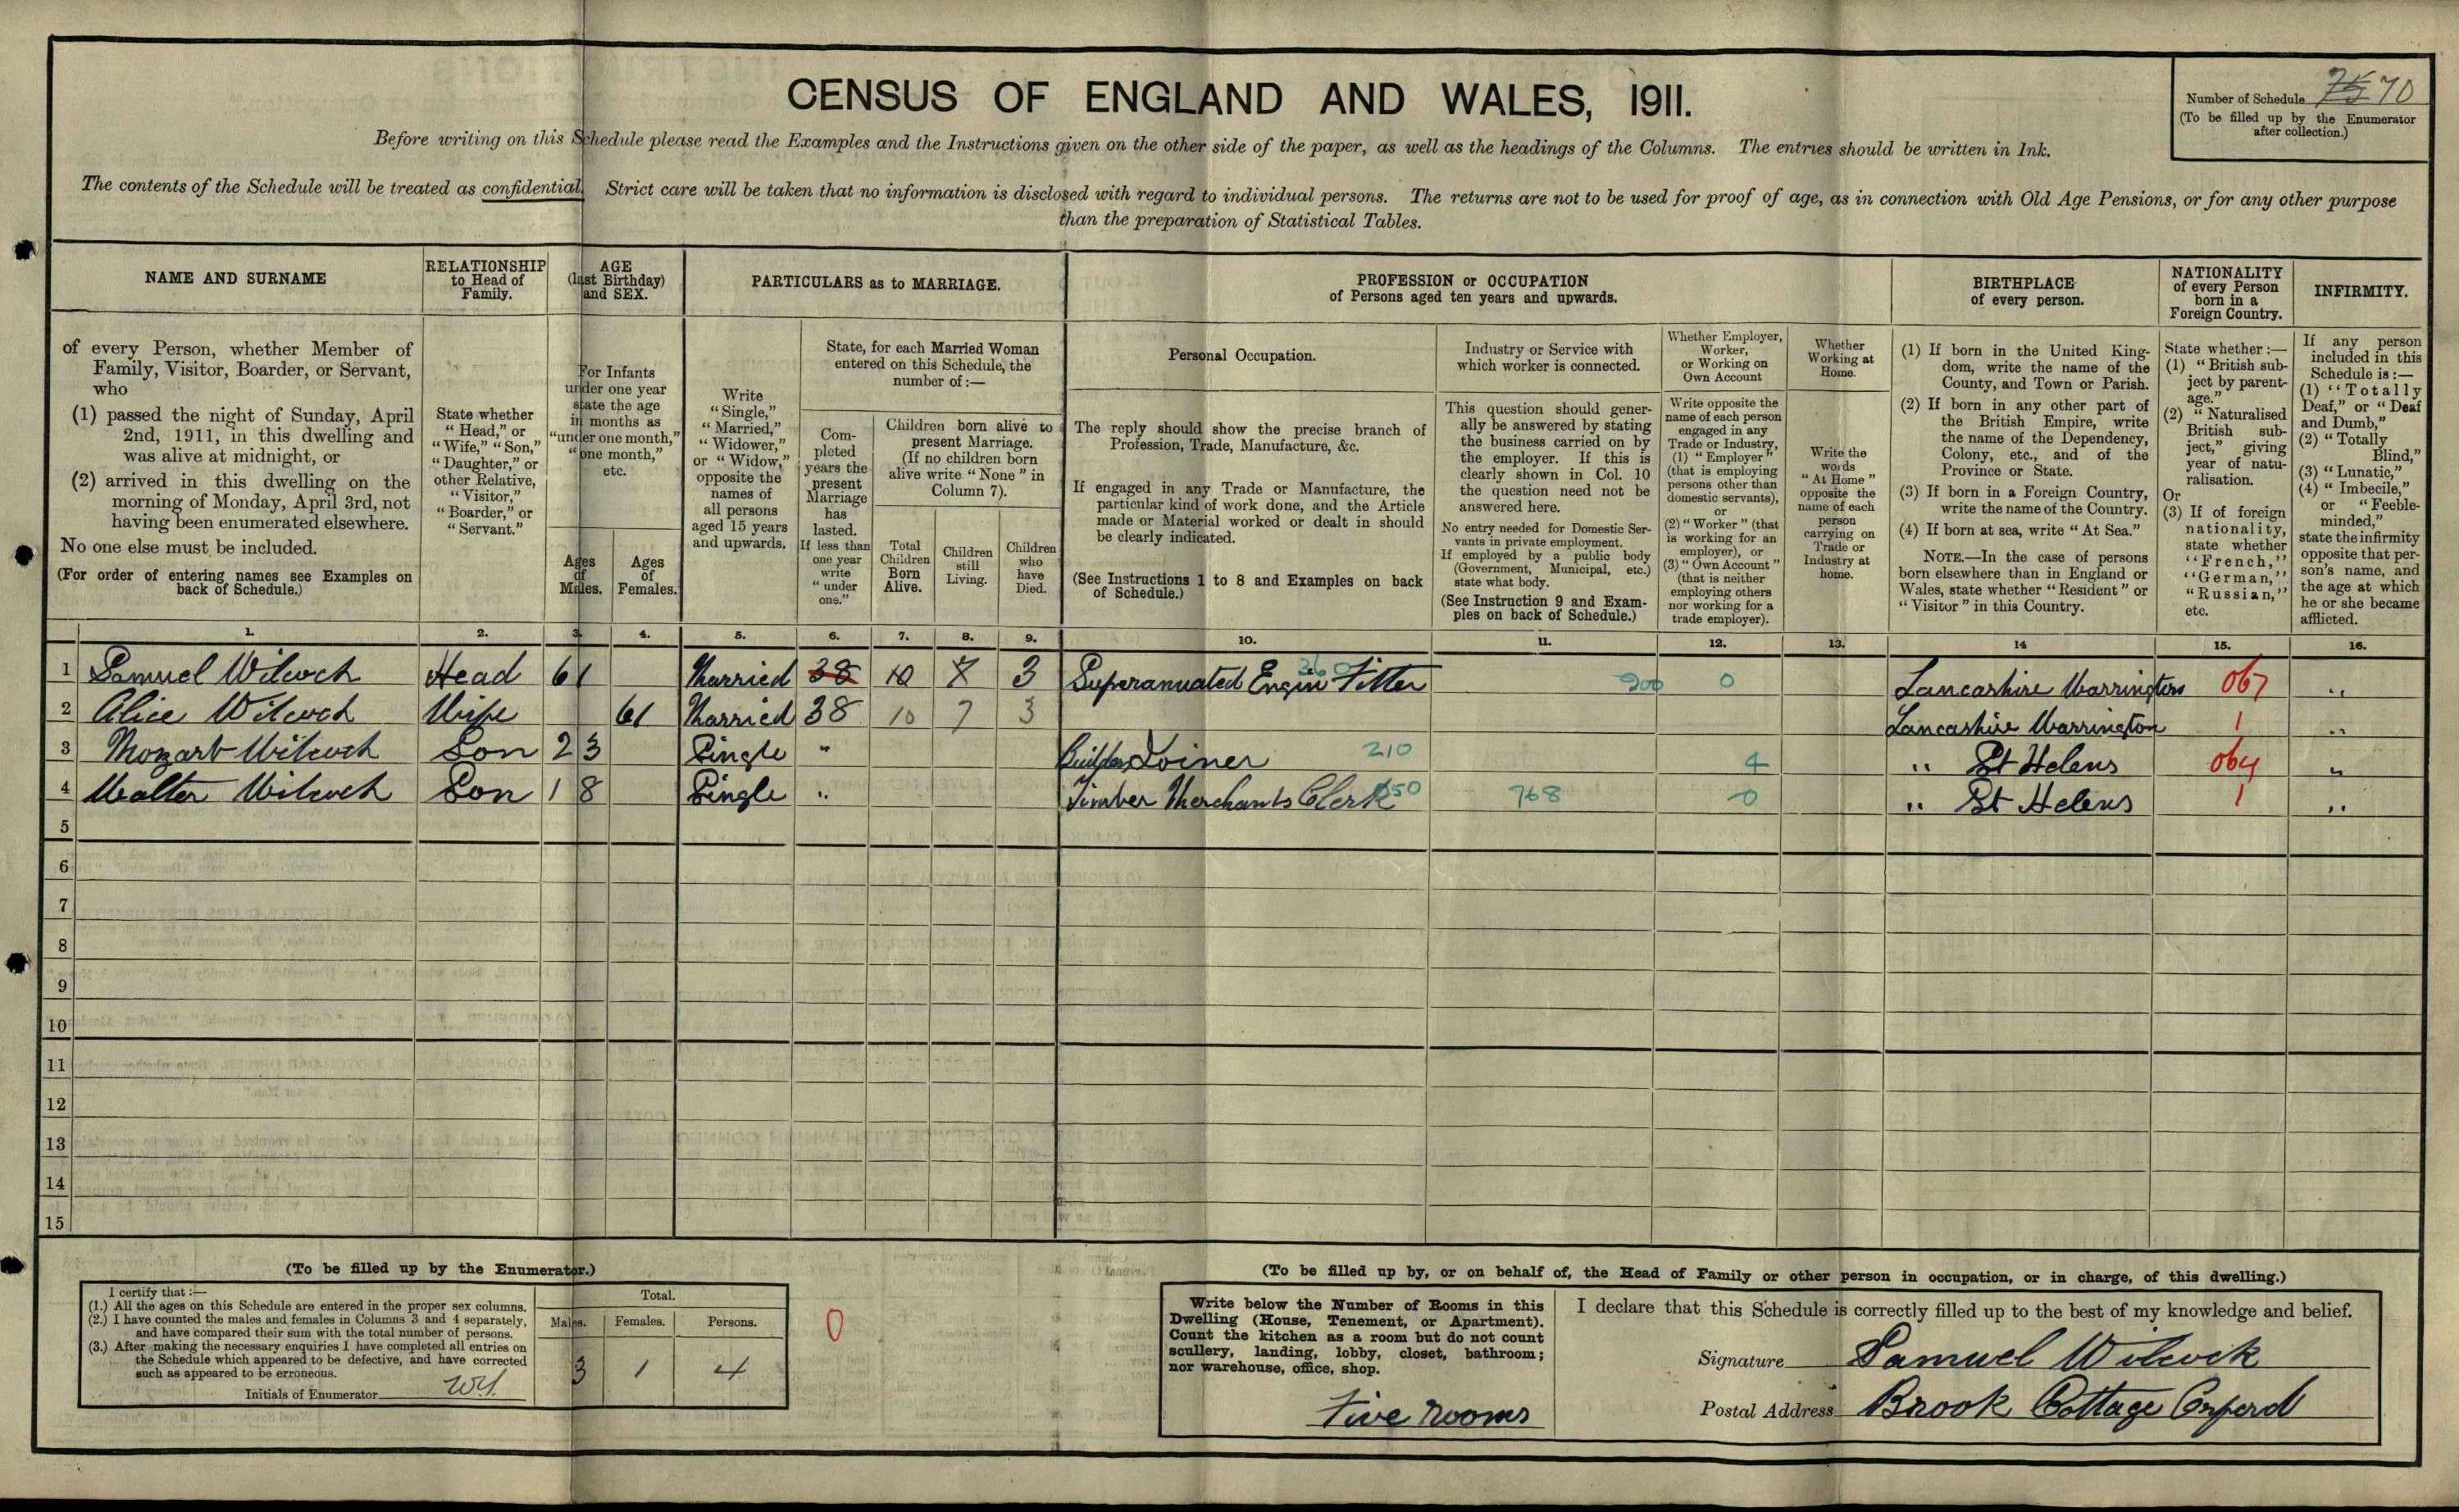 CENSUS OF ENGLAND AND WALES, 1911.
Number of Schedule 75 70
(To be filled up by the Enumerator
after collection.)
Before writing on this Schedule please read the Examples and the Instructions given on the other side of the paper, as well as the headings of the Columns. The entries should be written in Ink.
The contents of the Schedule will be treated as confidential. Strict care will be taken that no information is disclosed with regard to individual persons. The returns are not to be used for proof of age, as in connection with Old Age Pensions, or for any other purpose
than the preparation of Statistical Tables.
NAME AND SURNAME
of every Person, whether Member of
Family, Visitor, Boarder, or Servant,
who
(1) passed the night of Sunday, April
2nd, 1911, in this dwelling and
was alive at midnight, or
(2) arrived in this dwelling on the
morning of Monday, April 3rd, not
having been enumerated elsewhere.
No one else must be included.
(For order of entering names see Examples on
back of Schedule.)
RELATIONSHIP
to Head of
Family.
State whether
"Head," or
"Wife," "Son,"
"Daughter," or
other Relative,
"Visitor,"
"Boarder," or
"Servant."
AGE
(last Birthday)
and SEX.
For Infants
under one year
state the age
in months as
"under one month,"
"one month,"
etc.
Ages
of
Males.
Ages
of
Females.
PARTICULARS as to MARRIAGE.
Write
"Single,"
"Married,"
"Widower,"
or "Widow,"
opposite the
names of
all persons
aged 15 years
and upwards.
State, for each Married Woman
entered on this Schedule, the
number of :—
Com-
pleted
years the
present
Marriage
has
lasted.
If less than
one year
write
"under
one."
Children born alive to
present Marriage.
(If no children born
alive write "None" in
Column 7).
Total
Children
Born
Alive.
Children
still
Living.
Children
who
have
Died.
PROFESSION or OCCUPATION
of Persons aged ten years and upwards.
Personal Occupation.
The reply should show the precise branch of
Profession, Trade, Manufacture, &c.
If engaged in any Trade or Manufacture, the
particular kind of work done, and the Article
made or Material worked or dealt in should
be clearly indicated.
(See Instructions 1 to 8 and Examples on back
of Schedule.)
Industry or Service with
which worker is connected.
This question should gener-
ally be answered by stating
the business carried on by
the employer. If this is
clearly shown in Col. 10
the question need not be
answered here.
No entry needed for Domestic Ser-
vants in private employment.
If employed by a public body
(Government, Municipal, etc.)
state what body.
(See Instruction 9 and Exam-
ples on back of Schedule.)
Whether Employer,
Worker,
or Working on
Own Account
Write opposite the
name of each person
engaged in any
Trade or Industry,
(1) "Employer"
(that is employing
persons other than
domestic servants),
or
(2) "Worker" (that
is working for an
employer), or
(3) "Own Account"
(that is neither
employing others
nor working for a
trade employer).
Whether
Working at
Home.
Write the
words
"At Home"
opposite the
name of each
person
carrying on
Trade or
Industry at
home.
BIRTHPLACE
of every person.
(1) If born in the United King-
dom, write the name of the
County, and Town or Parish.
(2) If born in any other part of
the British Empire, write
the name of the Dependency,
Colony, etc., and of the
Province or State.
(3) If born in a Foreign Country,
write the name of the Country.
(4) If born at sea, write "At Sea."
NOTE.—In the case of persons
born elsewhere than in England or
Wales, state whether "Resident" or
"Visitor" in this Country.
NATIONALITY
of every Person
born in a
Foreign Country.
State whether :—
(1) "British sub-
ject by parent-
age."
(2) "Naturalised
British sub-
ject," giving
year of natu-
ralisation.
Or
(3) If of foreign
nationality,
state whether
"French,"
"German,"
"Russian,"
etc.
INFIRMITY.
If any person
included in this
Schedule is :—
(1) "Totally
Deaf," or "Deaf
and Dumb,"
(2) "Totally
Blind,"
(3) "Lunatic,"
(4) "Imbecile,"
or "Feeble-
minded,"
state the infirmity
opposite that per-
son's name, and
the age at which
he or she became
afflicted.
1. 2. 3. 4. 5. 6. 7. 8. 9. 10. 11. 12. 13. 14 15. 16.
1 Samuel Wilcock Head 61 Married 38 10 7 3 Superanuated Engin Fitter 360 900 0 Lancashire Warrington 067 "
2 Alice Wilcock Wife 61 Married 38 10 7 3 Lancashire Warrington 1 "
3 Mozart Wilcock Son 23 Single " Builders Joiner 210 4 " St Helens 064 "
4 Walter Wilcock Son 18 Single " Timber Merchants Clerk 050 768 0 " St Helens 1 "
5
6
7
8
9
10
11
12
13
14
15
(To be filled up by the Enumerator.)
I certify that :—
(1.) All the ages on this Schedule are entered in the proper sex columns.
(2.) I have counted the males and females in Columns 3 and 4 separately,
and have compared their sum with the total number of persons.
(3.) After making the necessary enquiries I have completed all entries on
the Schedule which appeared to be defective, and have corrected
such as appeared to be erroneous.
Initials of Enumerator
Total.
Males. Females. Persons.
3 1 4
0
(To be filled up by, or on behalf of, the Head of Family or other person in occupation, or in charge, of this dwelling.)
Write below the Number of Rooms in this
Dwelling (House, Tenement, or Apartment).
Count the kitchen as a room but do not count
scullery, landing, lobby, closet, bathroom;
nor warehouse, office, shop.
Five rooms
I declare that this Schedule is correctly filled up to the best of my knowledge and belief.
Signature Samuel Wilcock
Postal Address Brook Cottage Orford